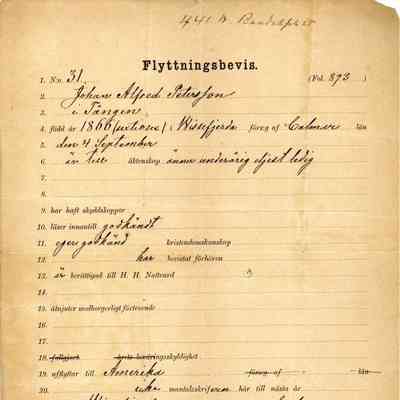 441 W Randolph st
Flyttningsbevis.
1. N:o 31. (Fol. 873 )
2. Johan Alfred Petersson
3. i Tången
4. född år 1866 ( ) i Wissefjerda förs:g af Calmar län
5. den 4 September
6. är till äktenskap ännu underårig eljest ledig
7.
8.
9. har haft skyddskoppor
10. läser innantill godkändt
11. eger godkänd kristendomskunskap
12. har bevistat förhören
13. är berättigad till H. H. Nattvard
14.
15. åtnjuter medborgerligt förtroende
16.
17.
18. fullgjort årets beväringsskyldighet
19. utflyttar till Amerika förs:g af län
20. icke mantalsskrifven här till nästa år